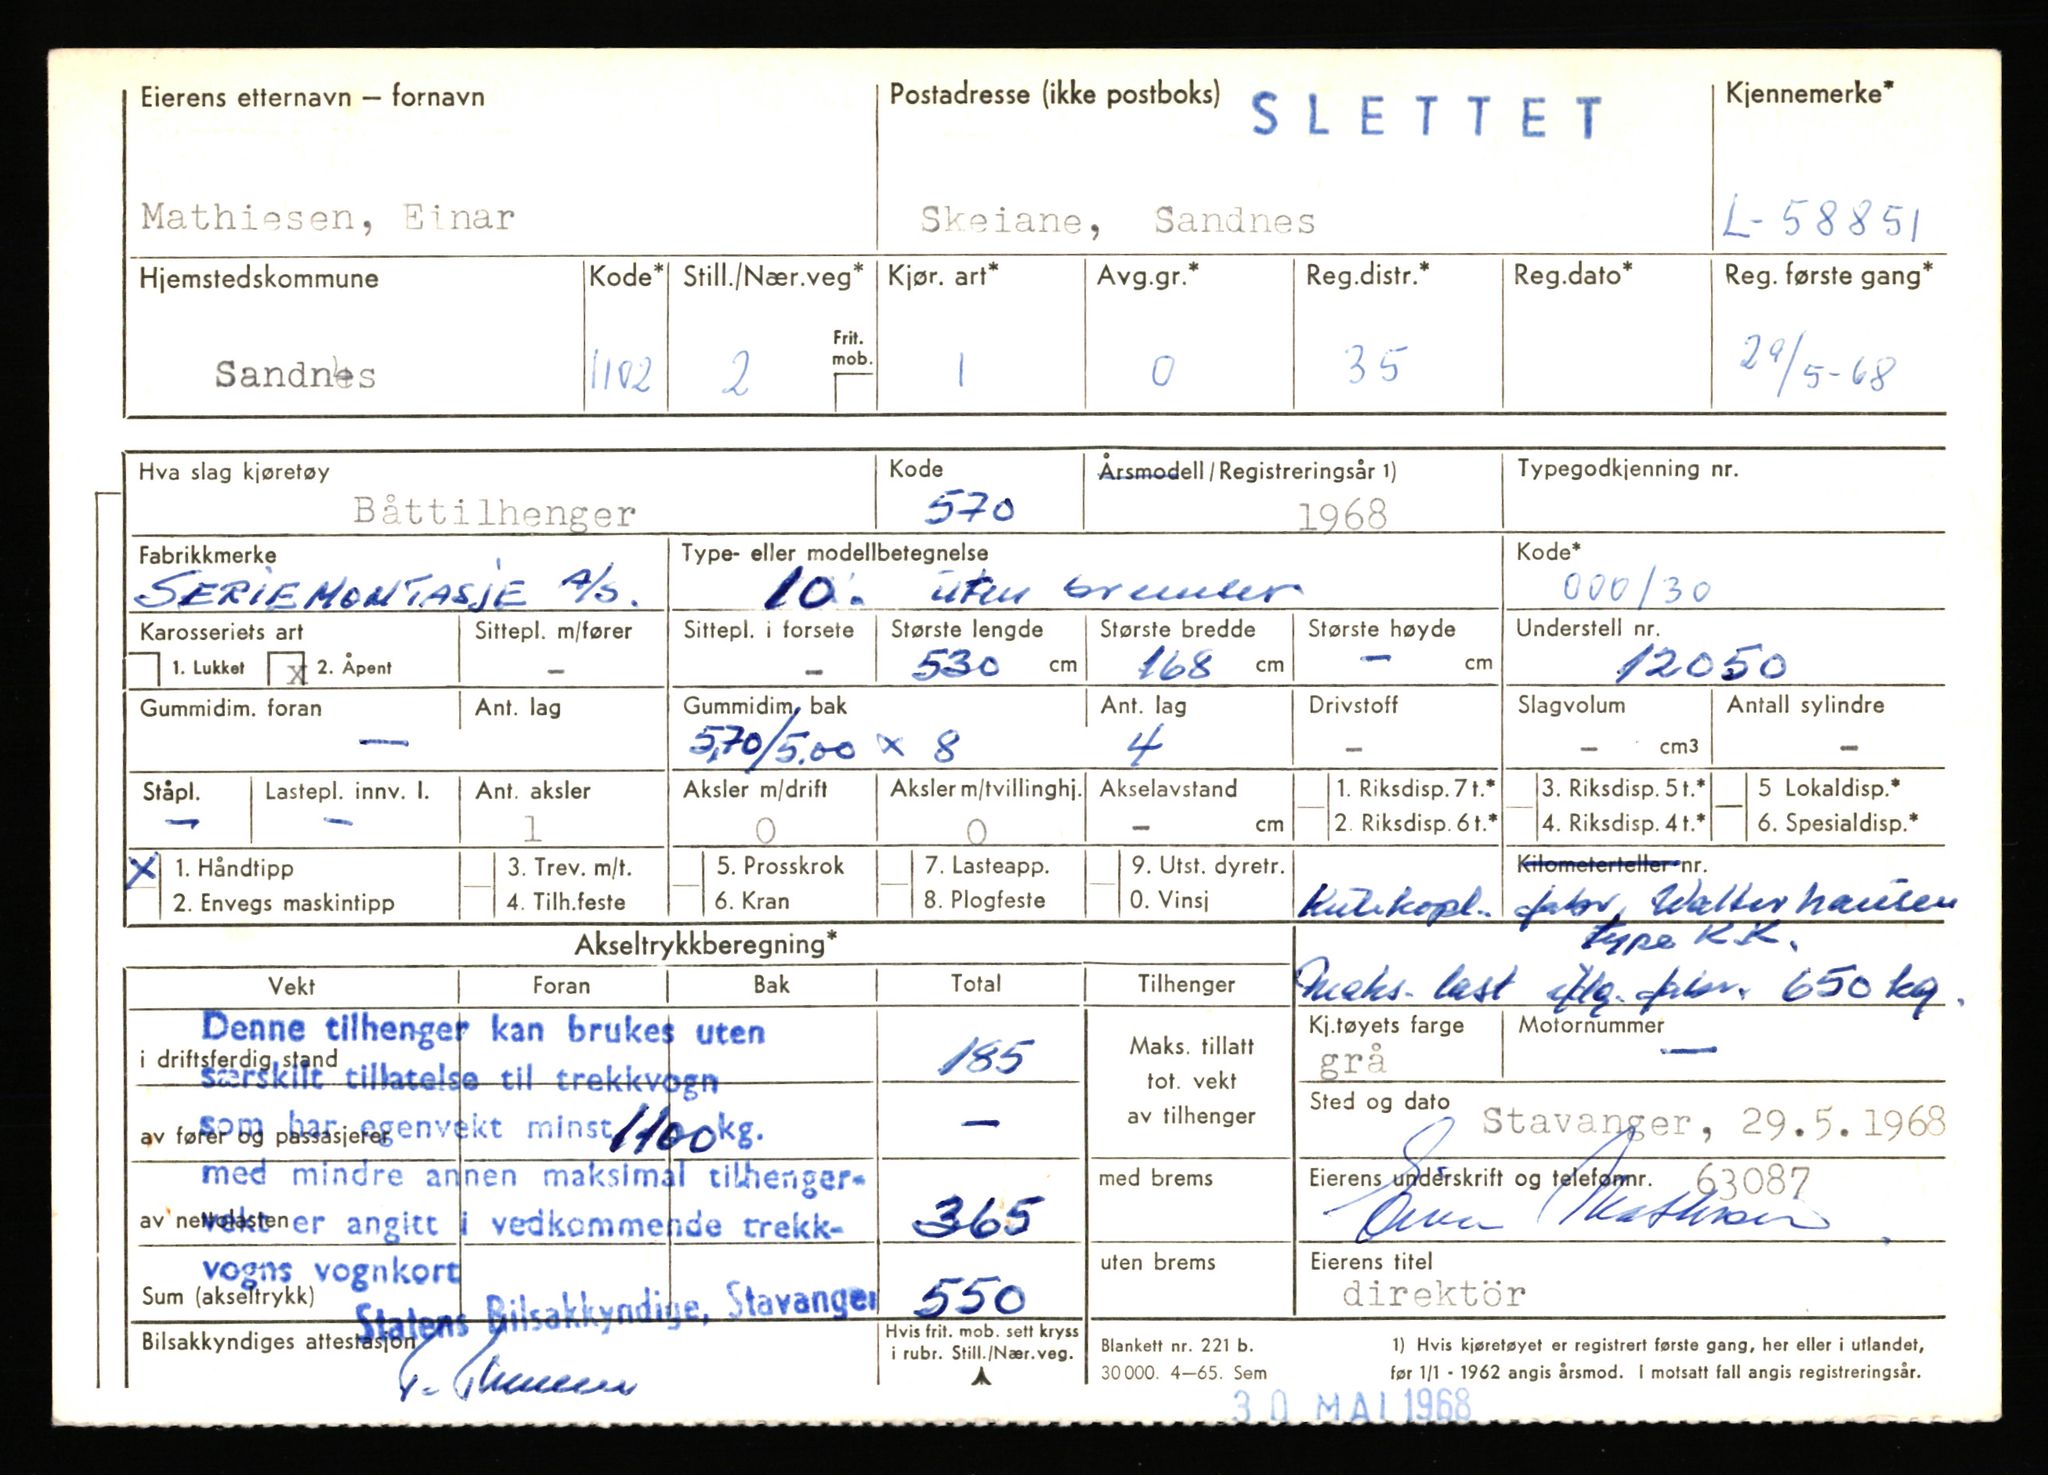 Eierens etternavn – fornavn
Postadresse (ikke postboks)
SLETTET
Kjennemerke*
Mathiesen, Einar
Skeiane, Sandnes
L-58851
Hjemstedskommune
Kode*
Still./Nær.veg*
Kjør. art*
Avg.gr.*
Reg.distr.*
Reg.dato*
Reg. første gang*
Frit. mob.
Sandnes
1102
2
1
0
35
29/5-68
Hva slag kjøretøy
Kode
Årsmodell/Registreringsår 1)
Typegodkjenning nr.
Båttilhenger
570
1968
Fabrikkmerke
Type- eller modellbetegnelse
Kode*
SERIEMONTASJE A/S.
10. uten bremser
000/30
Karosseriets art
Sittepl. m/fører
Sittepl. i forsete
Største lengde
Største bredde
Største høyde
Understell nr.
1. Lukket
x 2. Åpent
–
–
530 cm
168 cm
– cm
12050
Gummidim. foran
Ant. lag
Gummidim. bak
Ant. lag
Drivstoff
Slagvolum
Antall sylindre
—
5,70/5.00 x 8
4
–
– cm3
–
Ståpl.
Lastepl. innv. l.
Ant. aksler
Aksler m/drift
Aksler m/tvillinghj.
Akselavstand
1. Riksdisp. 7 t.*
3. Riksdisp. 5 t.*
5 Lokaldisp.*
–
–
1
0
0
– cm
2. Riksdisp. 6 t.*
4. Riksdisp. 4 t.*
6. Spesialdisp.*
X
1. Håndtipp
3. Trev. m/t.
5. Prosskrok
7. Lasteapp.
9. Utst. dyretr.
Kilometerteller nr.
2. Envegs maskintipp
4. Tilh.feste
6. Kran
8. Plogfeste
0. Vinsj
Kulekopl. fabr. Walterhausen
type K.K.
Maks. last iflg. fabr. 650 kg.
Akseltrykkberegning*
Vekt
Foran
Bak
Total
Tilhenger
Denne tilhenger kan brukes uten
særskilt tillatelse til trekkvogn
som har egenvekt minst 1100 kg.
med mindre annen maksimal tilhenger-
vekt er angitt i vedkommende trekk-
vogns vognkort
Statens Bilsakkyndige, Stavanger
i driftsferdig stand
185
av fører og passasjerer
–
av nettolasten
365
Sum (akseltrykk)
550
Maks. tillatt
tot. vekt
av tilhenger
med brems
uten brems
Kj.tøyets farge
Motornummer
grå
—
Sted og dato
Stavanger, 29.5.1968
Eierens underskrift og telefonnr.
63087
Einar Mathiesen
Eierens titel
direktör
Bilsakkyndiges attestasjon
Hvis frit. mob. sett kryss
i rubr. Still./Nær.veg.
Blankett nr. 221 b.
30 000. 4–65. Sem
1) Hvis kjøretøyet er registrert første gang, her eller i utlandet,
før 1/1 - 1962 angis årsmod. I motsatt fall angis registreringsår.
30 MAI 1968